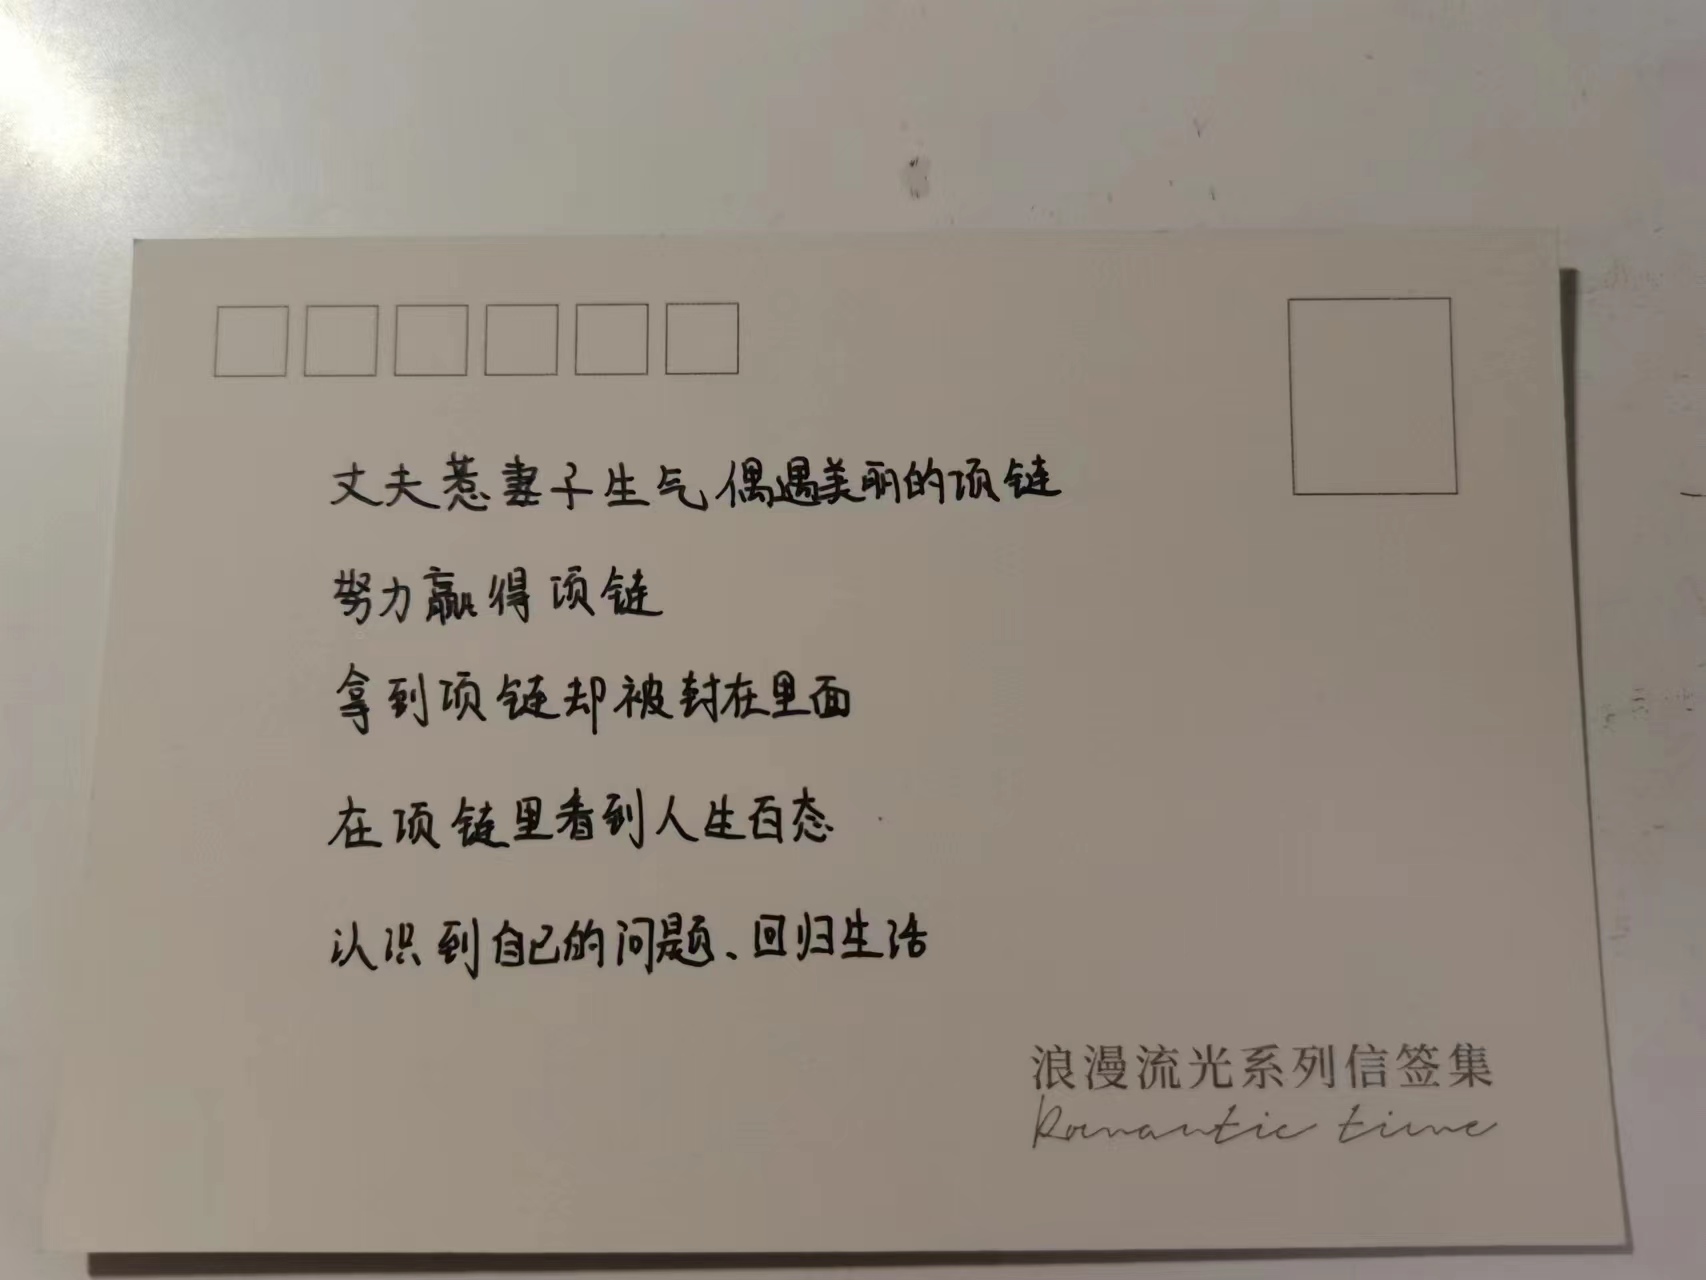 丈夫惹妻子生气偶遇美丽的项链
努力赢得项链
拿到项链却被封在里面
在项链里看到人生百态
认识到自己的问题、回归生活
浪漫流光系列信签集
Romantic time